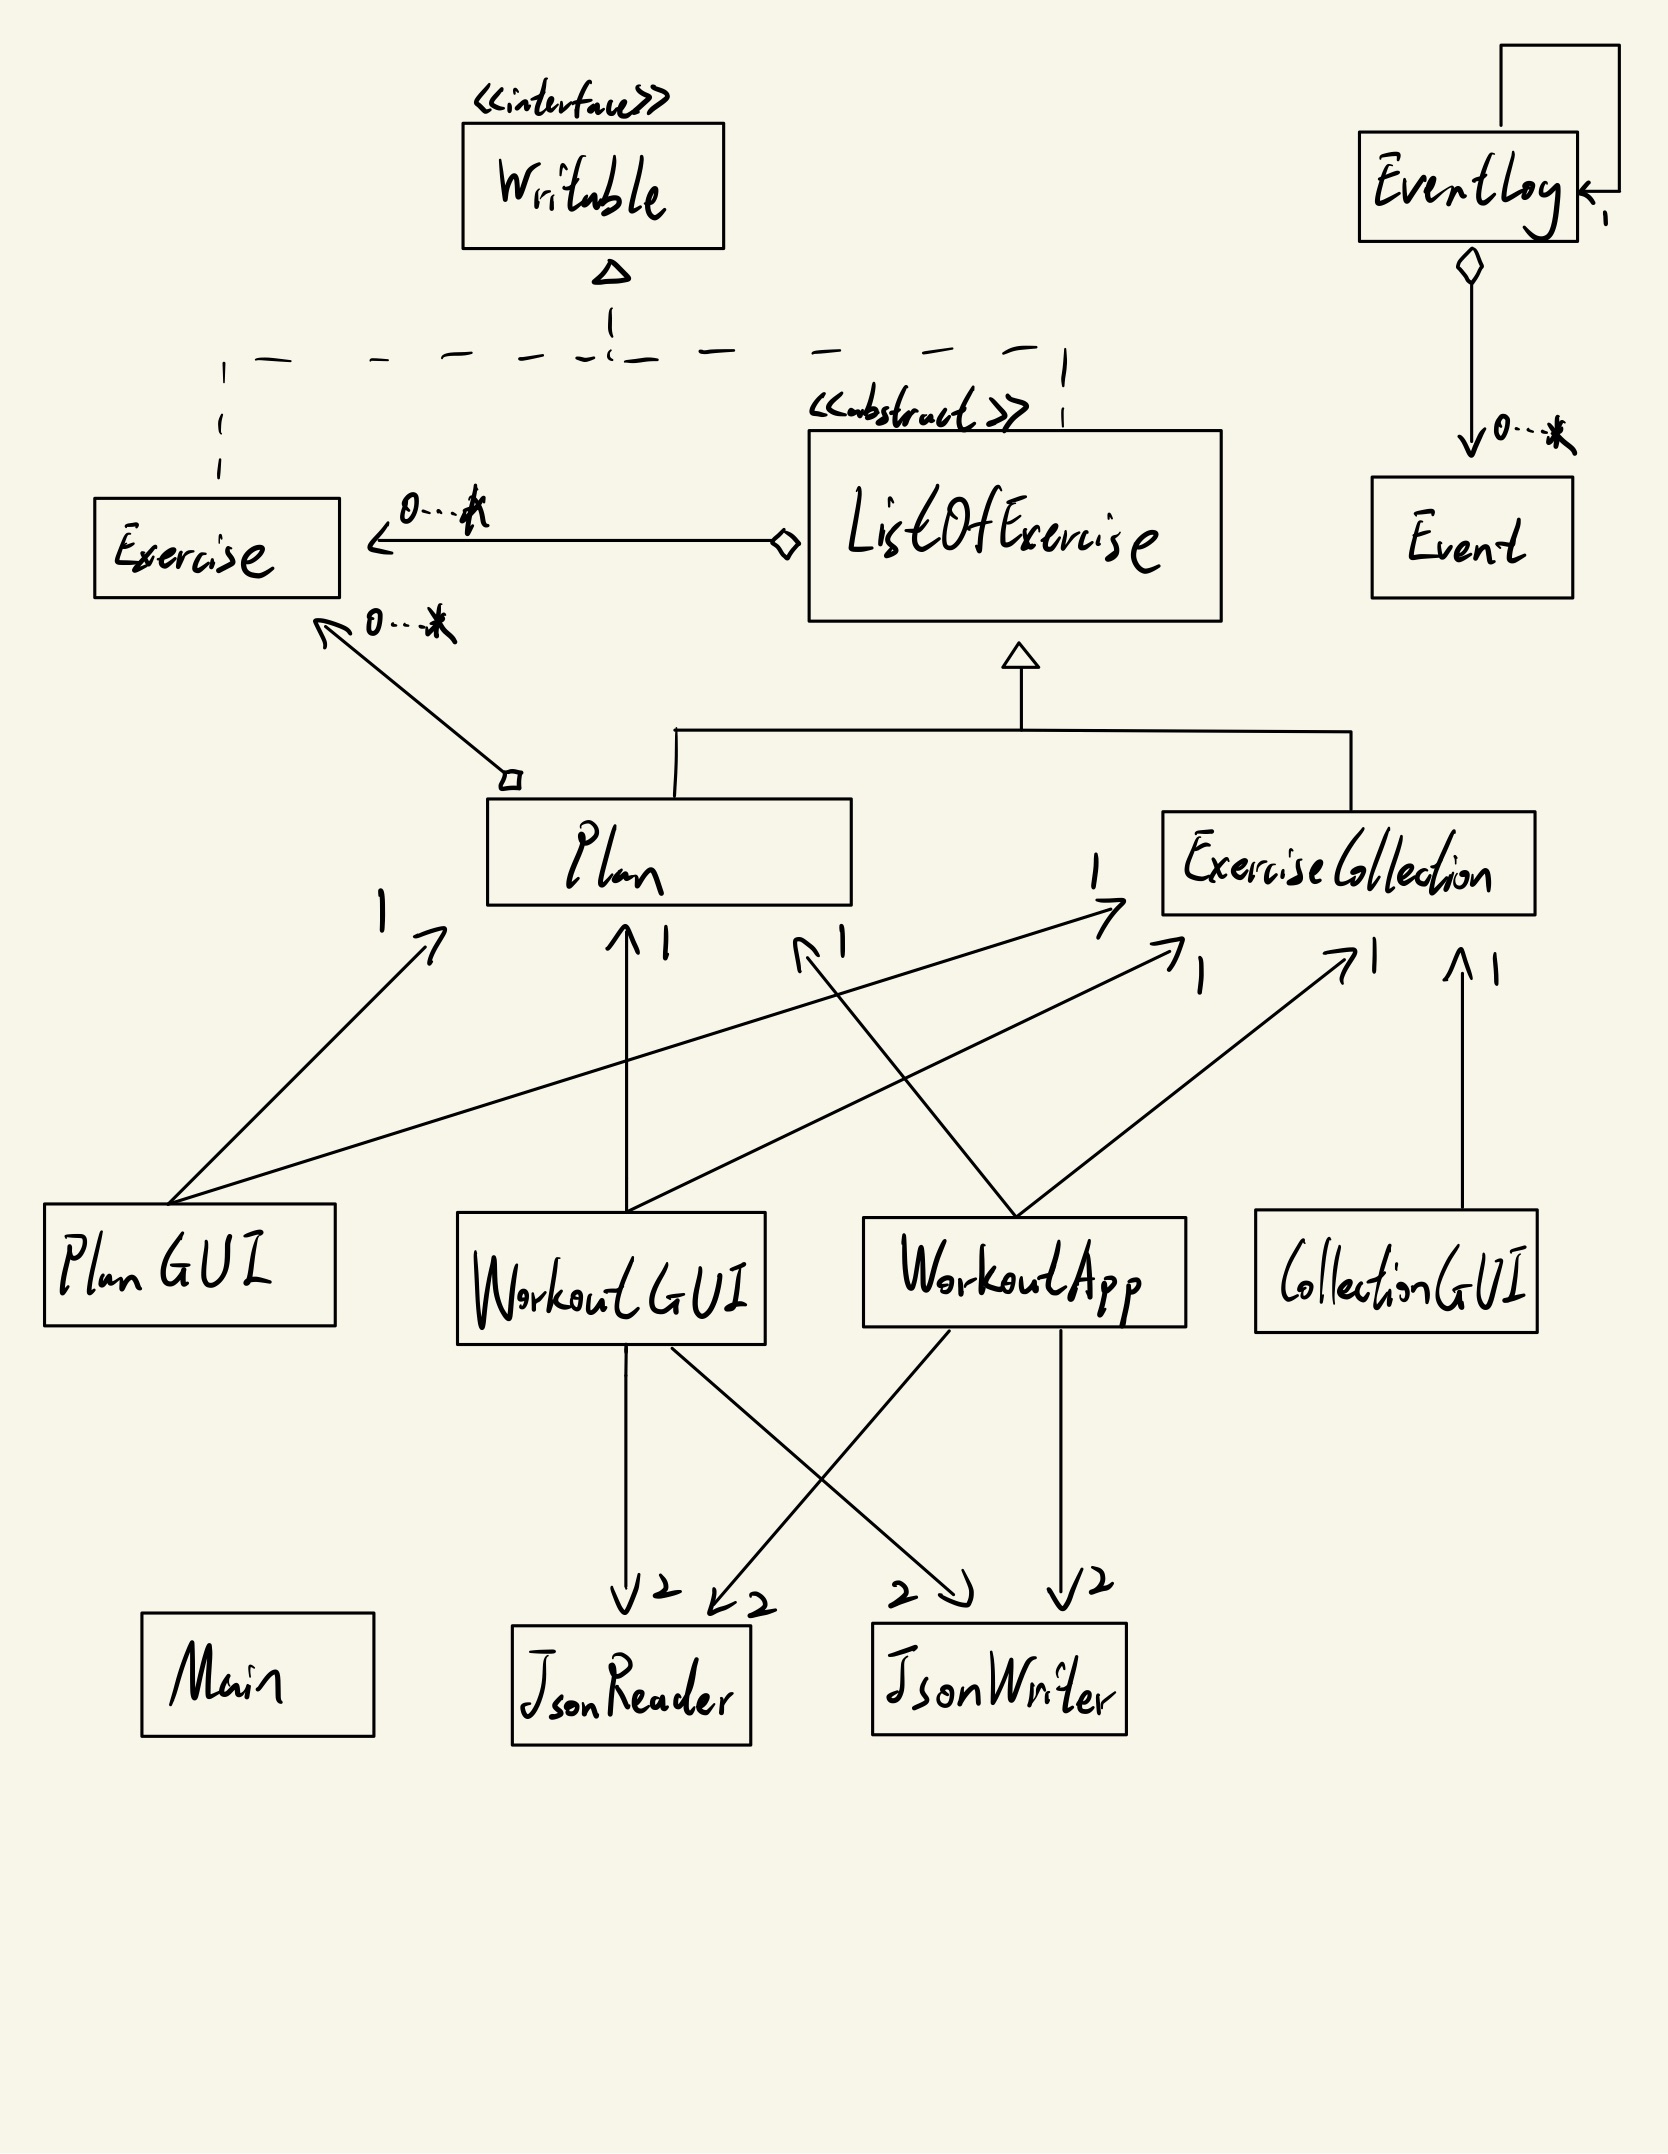 <<interface>>
Writable
EventLog
1
<<abstract>>
0...*
ListOfExercise
0...*
Exercise
Event
0...*
Plan
ExerciseCollection
1
1
1
1
1
1
1
Plan GUI
WorkoutGUI
WorkoutApp
CollectionGUI
2
2
2
2
Main
JsonReader
JsonWriter